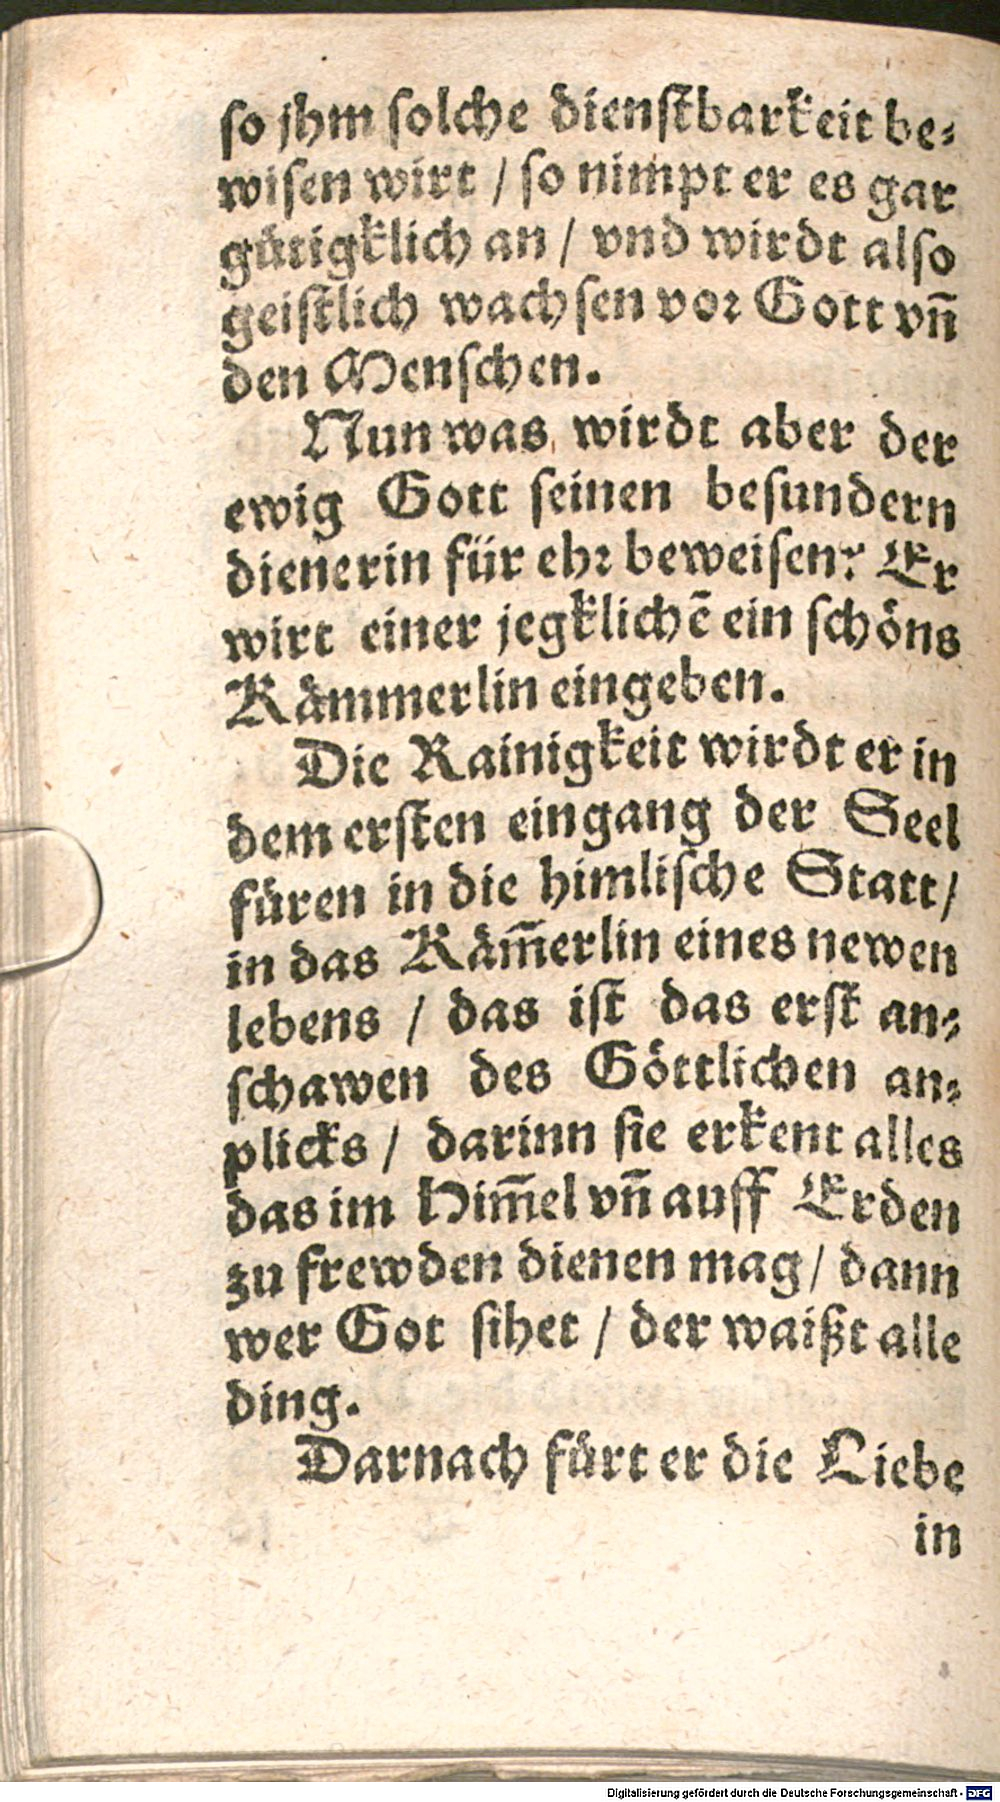 so jhm solche dienstbarkeit be⸗
wisen wirt / so nimpt er es gar
gütigklich an / vnd wirdt also
geistlich wachsen vor Gott vñ
den Menschen.
Nun was wirdt aber der
ewig Gott seinen besundern
dienerin für ehr beweisen? Er
wirt einer jegklichē ein schöns
Kämmerlin eingeben.
Die Rainigkeit wirdt er in
dem ersten eingang der Seel
füren in die himlische Statt /
in das Käm̄erlin eines newen
lebens / das ist das erst an⸗
schawen des Göttlichen an⸗
plicks / darinn sie erkent alles
das im Him̄el vñ auff Erden
zu frewden dienen mag / dann
wer Got sihet / der waißt alle
ding.
Darnach fürt er die Liebe
in
Digitalisierung gefördert durch die Deutsche Forschungsgemeinschaft - DFG